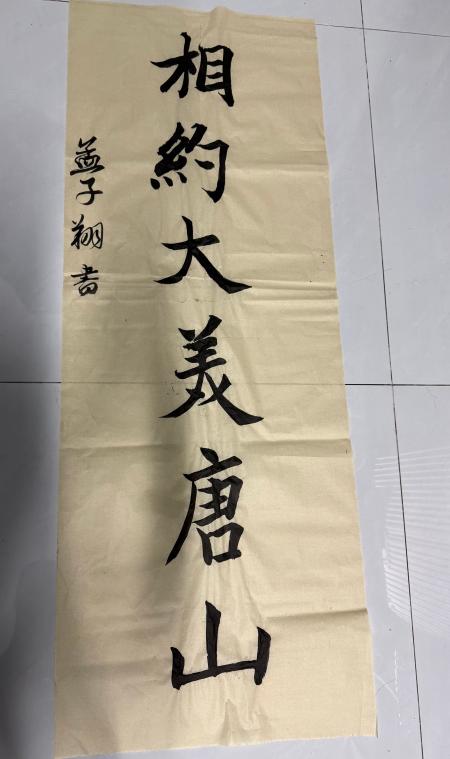 相約大美唐山
孟子翔書